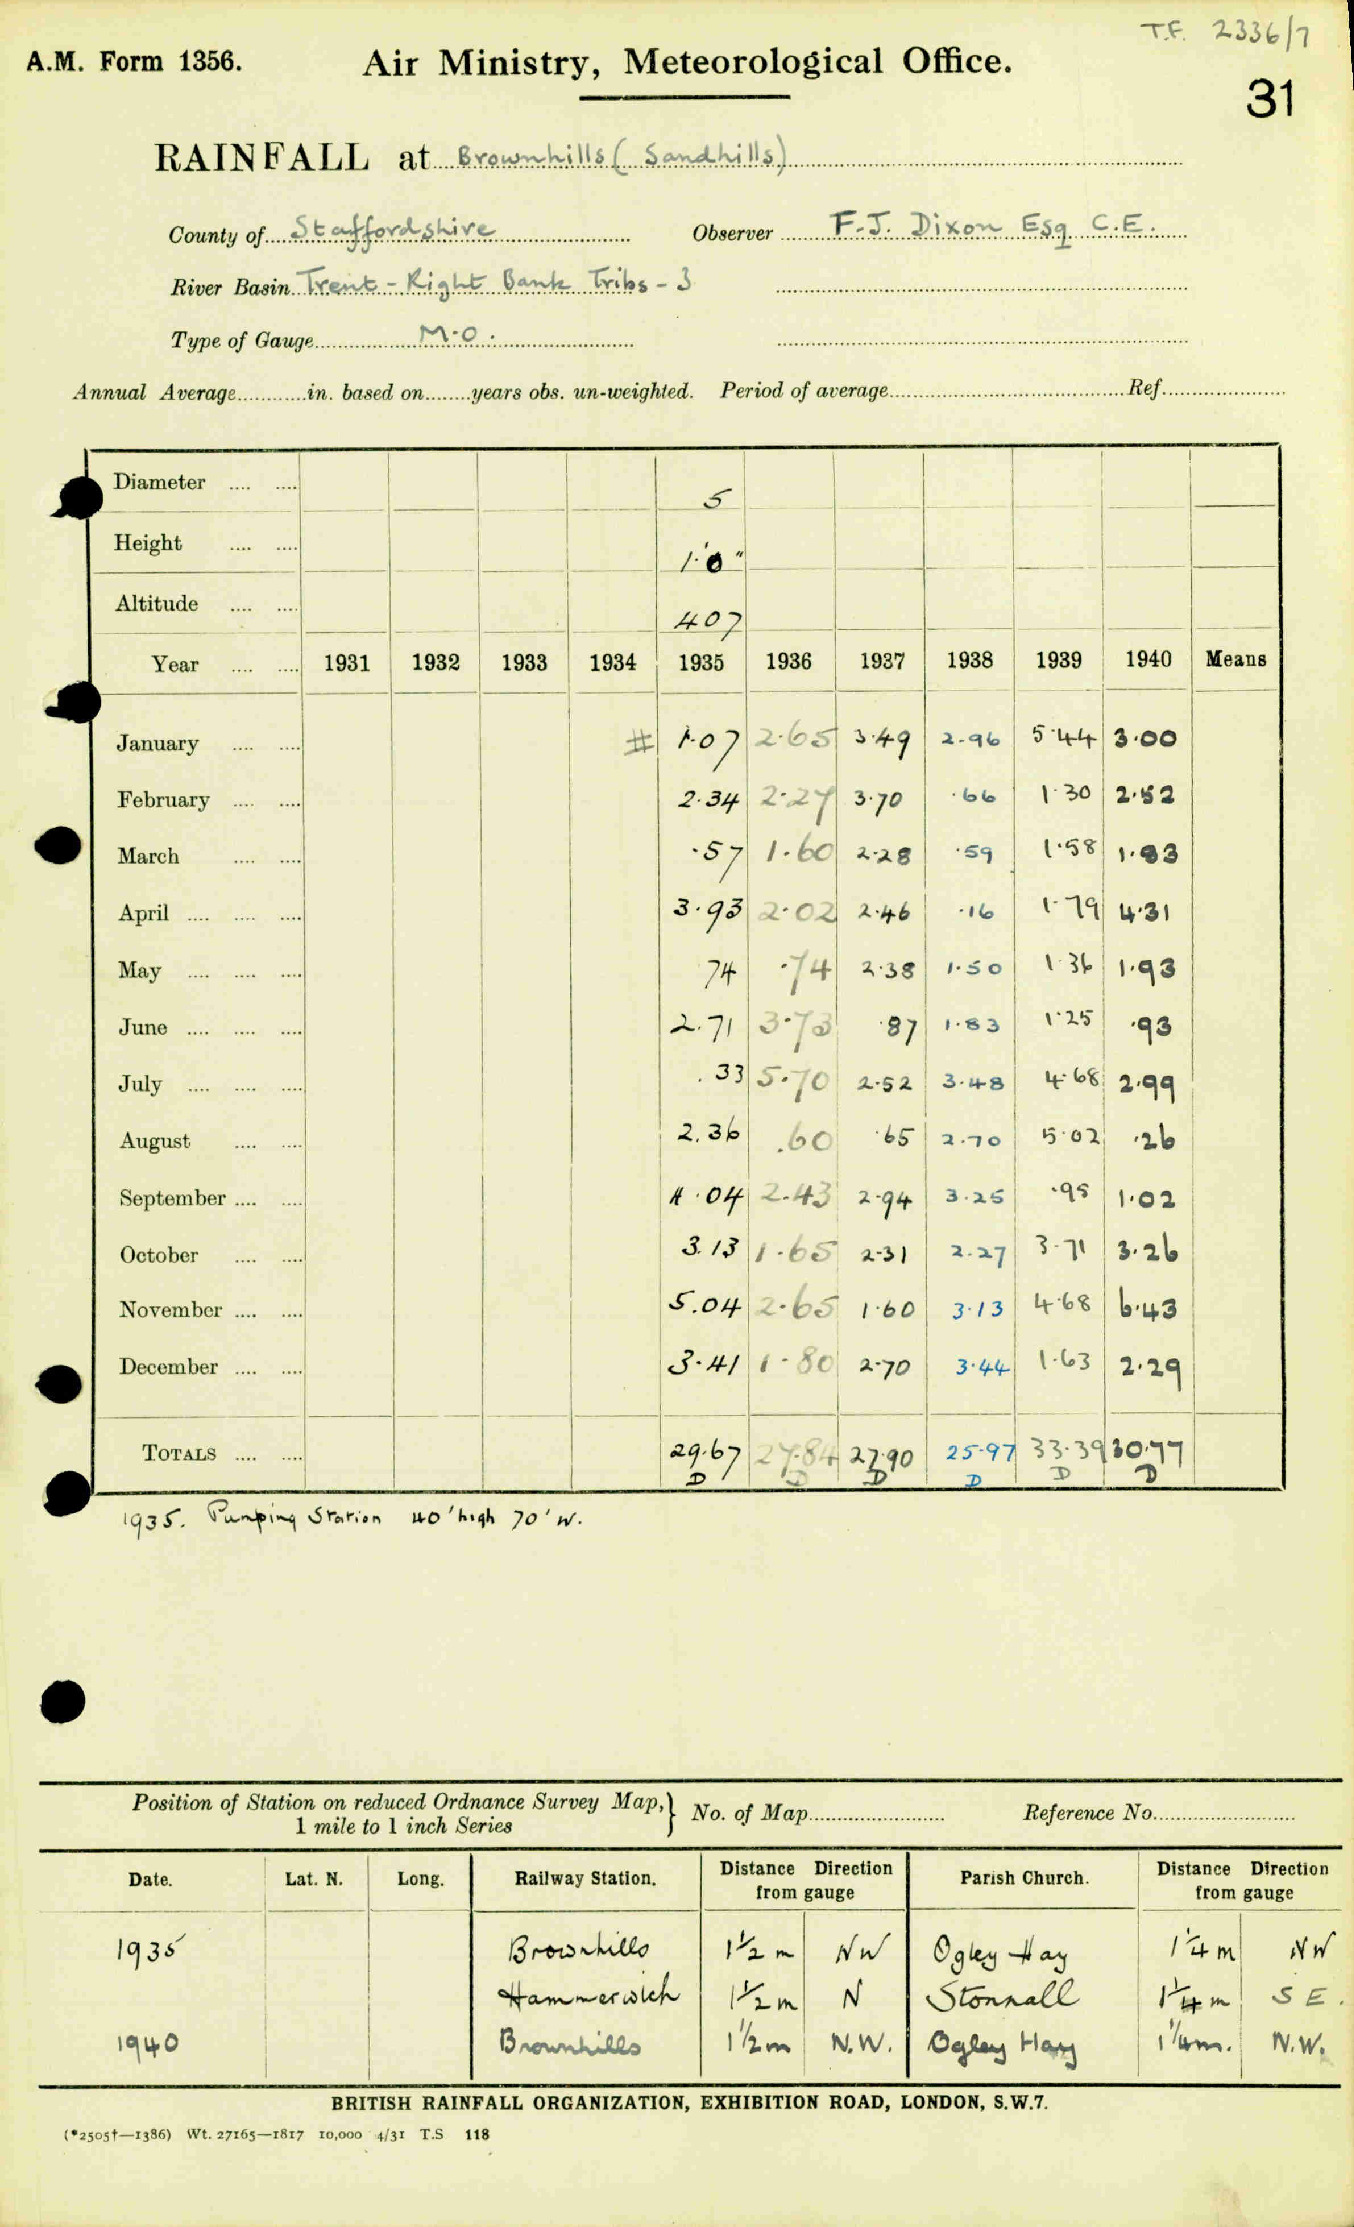 T.F. 2336/7
A.M. Form 1356. Air Ministry, Meteorological Office.
31
RAINFALL at Brownhills (Sandhills)
County of Staffordshire Observer F.J. Dixon Esq C.E.
River Basin Trent - Right Bank Tribs - 3
Type of Gauge M.O.
Annual Average in. based on years obs. un-weighted. Period of average Ref.
Diameter 5
Height 1'0"
Altitude 407
Year 1931 1932 1933 1934 1935 1936 1937 1938 1939 1940 Means
January # 1.07 2.65 3.49 2.96 5.44 3.00
February 2.34 2.27 3.70 .66 1.30 2.52
March .57 1.60 2.28 .59 1.58 1.83
April 3.93 2.02 2.46 .16 1.79 4.31
May 74 .74 2.38 1.50 1.36 1.93
June 2.71 3.73 .87 1.83 1.25 .93
July .33 5.70 2.52 3.48 4.68 2.99
August 2.36 .60 .65 2.70 5.02 .26
September 4.04 2.43 2.94 3.25 .95 1.02
October 3.13 1.65 2.31 2.27 3.71 3.26
November 5.04 2.65 1.60 3.13 4.68 6.43
December 3.41 1.80 2.70 3.44 1.63 2.29
TOTALS 29.67 27.84 27.90 25.97 33.39 30.77
D D D D D D
1935. Pumping Station 40' high 70' W.
Position of Station on reduced Ordnance Survey Map, } No. of Map Reference No.
1 mile to 1 inch Series
Date. Lat. N. Long. Railway Station. Distance Direction from gauge Parish Church. Distance Direction from gauge
1935 Brownhills 1½ m NW Ogley Hay 1¼ m NW
Hammerwich 1½ m N Stonnall 1¼ m S E.
1940 Brownhills 1½ m N.W. Ogley Hay 1¼ m. N.W.
BRITISH RAINFALL ORGANIZATION, EXHIBITION ROAD, LONDON, S.W.7.
(*2505†—1386) Wt. 27165—1817 10,000 4/31 T.S 118